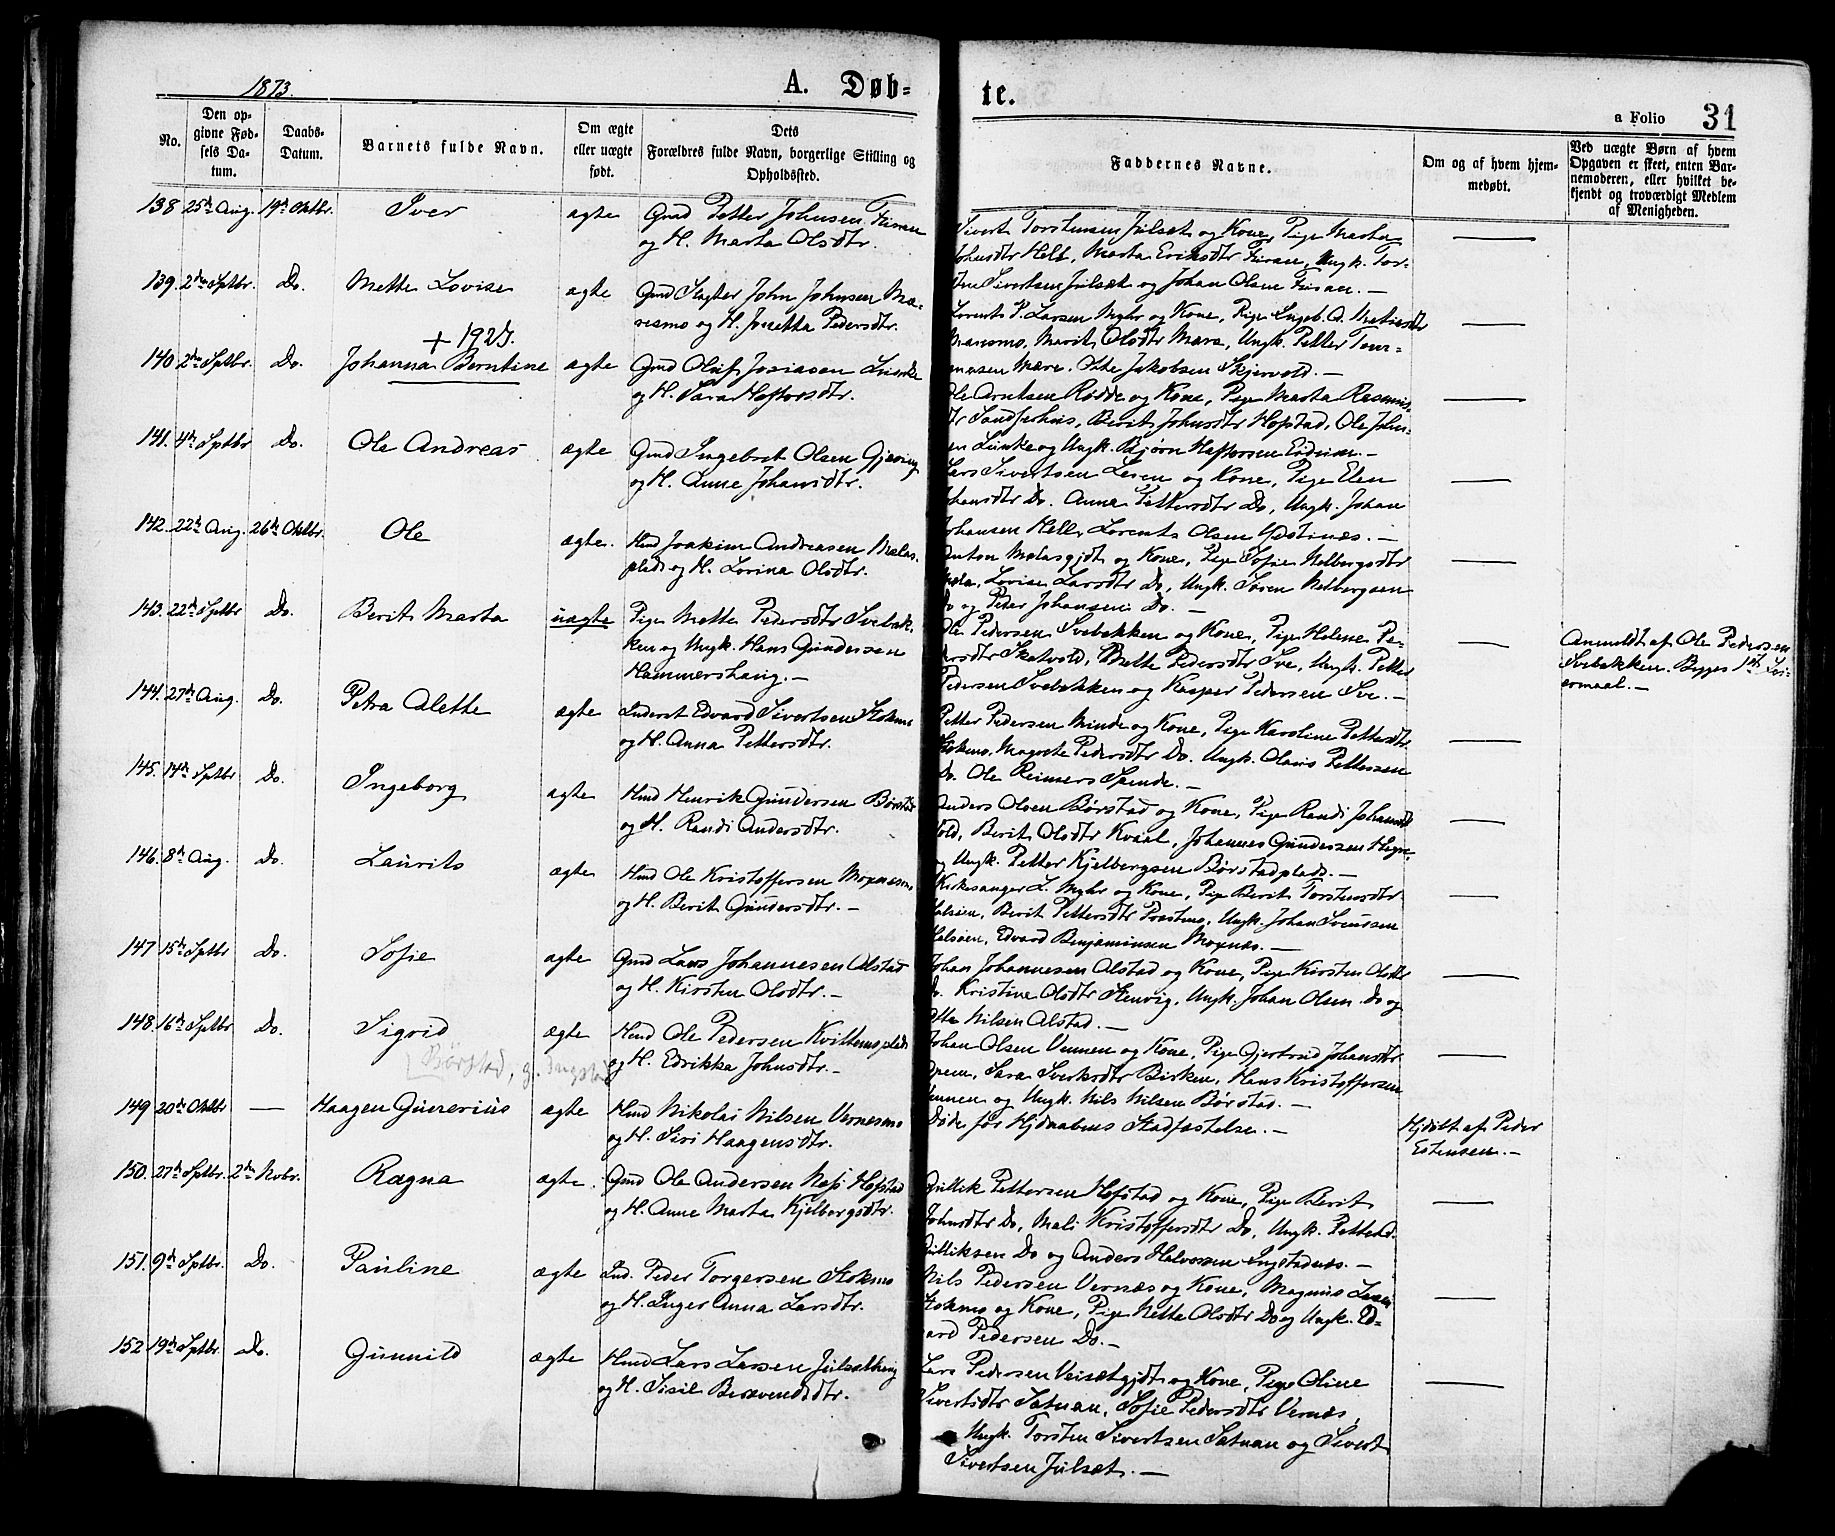 1873.
A. Døb-
te.
a Folio 31
No.
Den op-
givne Fød-
sels Da-
tum.
Daabs-
Datum.
Barnets fulde Navn.
Om ægte
eller uægte
født.
Dets
Forældres fulde Navn, borgerlige Stilling og
Opholdssted.
Faddernes Navne.
Om og af hvem hjem-
medøbt.
Ved uægte Børn af hvem
Opgaven er skeet, enten Bar-
nemoderen, eller hvilket be-
kjendt og troværdigt Medlem
af Menigheden.
138 25de Aug. 19de Oktbr. Iver ægte Gmd Petter Johnsen
og H. Marta Olsdtr.
Sivert Torstensen Julset og Kone, Pige Marta
Johnsdtr Hell, Marta Eriksdtr, Ungk. Tor-
Sivertsen Julset og Johan Olsen. —
139. 2den Sptbr. Do. Mette Lovise ægte Gmd Slagter John Johnsen Mæ-
resmo og H. Pedersdtr.
Lorents P. Larsen Myhr og Kone, Pige Engeb. A.
Mæresmo, Marit Olsdtr Mære, Ungk. Petter
Mære. Otte Jakobsen Skjervold. —
+ 1925.
140 2den Sptbr. Do. Johanna Berntine ægte Gmd Oluf Josiasen
og H. Sara Haftorsdtr.
Ole Arntsen Rødde og Kone, Pige Marta
Sandferhus, Berit Johnsdtr Hofstad, Ole John-
sen og Ungk. Bjørn Haftorsen. —
141. 4de Sptbr Do. Ole Andreas ægte Gmd Ingebret Olsen
og H. Anne Johansdtr.
Lars Sivertsen Leren og Kone, Pige Elen
Johansdtr Do. Anna Pettersdtr Do, Ungk. Johan
Johansen Hell, Lorents Olsen. —
142. 22de Aug. 26de Oktbr. Ole ægte. Hmd Joakim Andreasen Mælas-
plads og H. Lorina Olsdtr.
Anton Mælasgjdt og Kone, Pige Sofie
Mæla, Lovise Larsdtr Do, Ungk. Søren
Do og Peder Johansen Do. —
143. 22de Sptbr Do. Berit Marta uægte Pige Mette Pedersdtr Svebak-
ken og Ungk. Hans Gundersen
Hammershaug. —
Ole Pedersen Svebakken og Kone, Pige Helene Pe-
dersdtr Skatvold, Mette Pedersdtr Sve, Ungk. Petter
Pedersen Svebakken og Kasper Pedersen Sve. —
Anmeldt af Ole Pedersen
Svebakken. Begges 1ste Lei-
ermaal. —
144. 27de Aug. Do. Petra Alette ægte Edvard Sivertsen Stokmo
og H. Anna Pettersdtr.
Petter Pedersen Minde og Kone, Pige Karoline Pettersdtr
Stokmo, Magrete Pedersdtr Do. Ungk. Olaus Pettersen
Do. Ole Reimers. —
145. 14de Sptbr Do. Ingeborg ægte Hmd Henrik Gundersen Børstad
og H. Randi Andersdtr.
Anders Olsen Børstad og Kone, Pige Randi Johansdtr
Berit Olsdtr Kvaal, Johannes Gundersen
og Ungk. Petter Kjelbergsen Børstadplads. —
146. 8de Aug. Do. Laurits ægte Hmd Ole Kristoffersen
og H. Berit Gundersdtr. —
Kirkesanger L. Myhr og Kone, Pige Berit Torstensdtr
Halsøen, Berit Pettersdtr Prestmo, Ungk. Johan Svendsen
Halsøen, Edvard Benjaminsen Moxnæs. —
147 15de Sptbr Do. Sofie ægte Gmd Lars Johannesen Alstad
og H. Kirsten Olsdtr. —
Johan Johannesen Alstad og Kone, Pige Kirsten Olsdtr
Do. Kristine Olsdtr Stenvig, Ungk. Johan Olsen Do og
Otte Nilsen Alstad. —
148. 16de Sptbr Do. Sigrid ægte Hmd Ole Pedersen Kvithemsplads
og H. Edrikka Johnsdtr. —
Johan Olsen Vennen og Kone, Pige Gjertrud Johansdtr
Sara Sivertsdtr Birken, Hans Kristoffersen
Vennen og Ungk. Nils Nilsen Børstad. —
Børstad, g. Ingstad
149 20de Oktbr — Haagen Gunerius ægte Hmd Nikolai Nilsen Vernesmo
og H. Siri Haagensdtr.
Døde før Hjdaabens Stadfæstelse. —
Hjdøbt af Peder
Estensen. —
150. 27de Sptbr. 2den Novbr. Ragna ægte. Gmd Ole Andersen Hofstad
og H. Anne Marta Kjelbergsdtr.
Gullik Pettersen Hofstad og Kone, Pige Berit
Johnsdtr Do, Mali Kristoffersdtr Do, Ungk. Petter
Gulliksen Do og Anders Halvorsen Ingstadnæs. —
151. 9de Sptbr. Do. Pauline ægte Ind. Peder Torgersen Stokmo
og H. Inger Anna Larsdtr.
Nils Pedersen Vernæs og Kone, Magnus
Stokmo og Kone, Pige Mette Olsdtr Do og Ungk. Ed-
vard Pedersen Do. —
152 19de Sptbr. Do. Gunnild ægte Hmd Lars Larsen
og H. Sisil
Lars Pedersen og Kone, Pige Oline
Sivertsdtr Satnan, Sofie Pedersdtr Vernæs,
Ungk. Torsten Sivertsen Satnan og Sivert
Sivertsen Julset. —